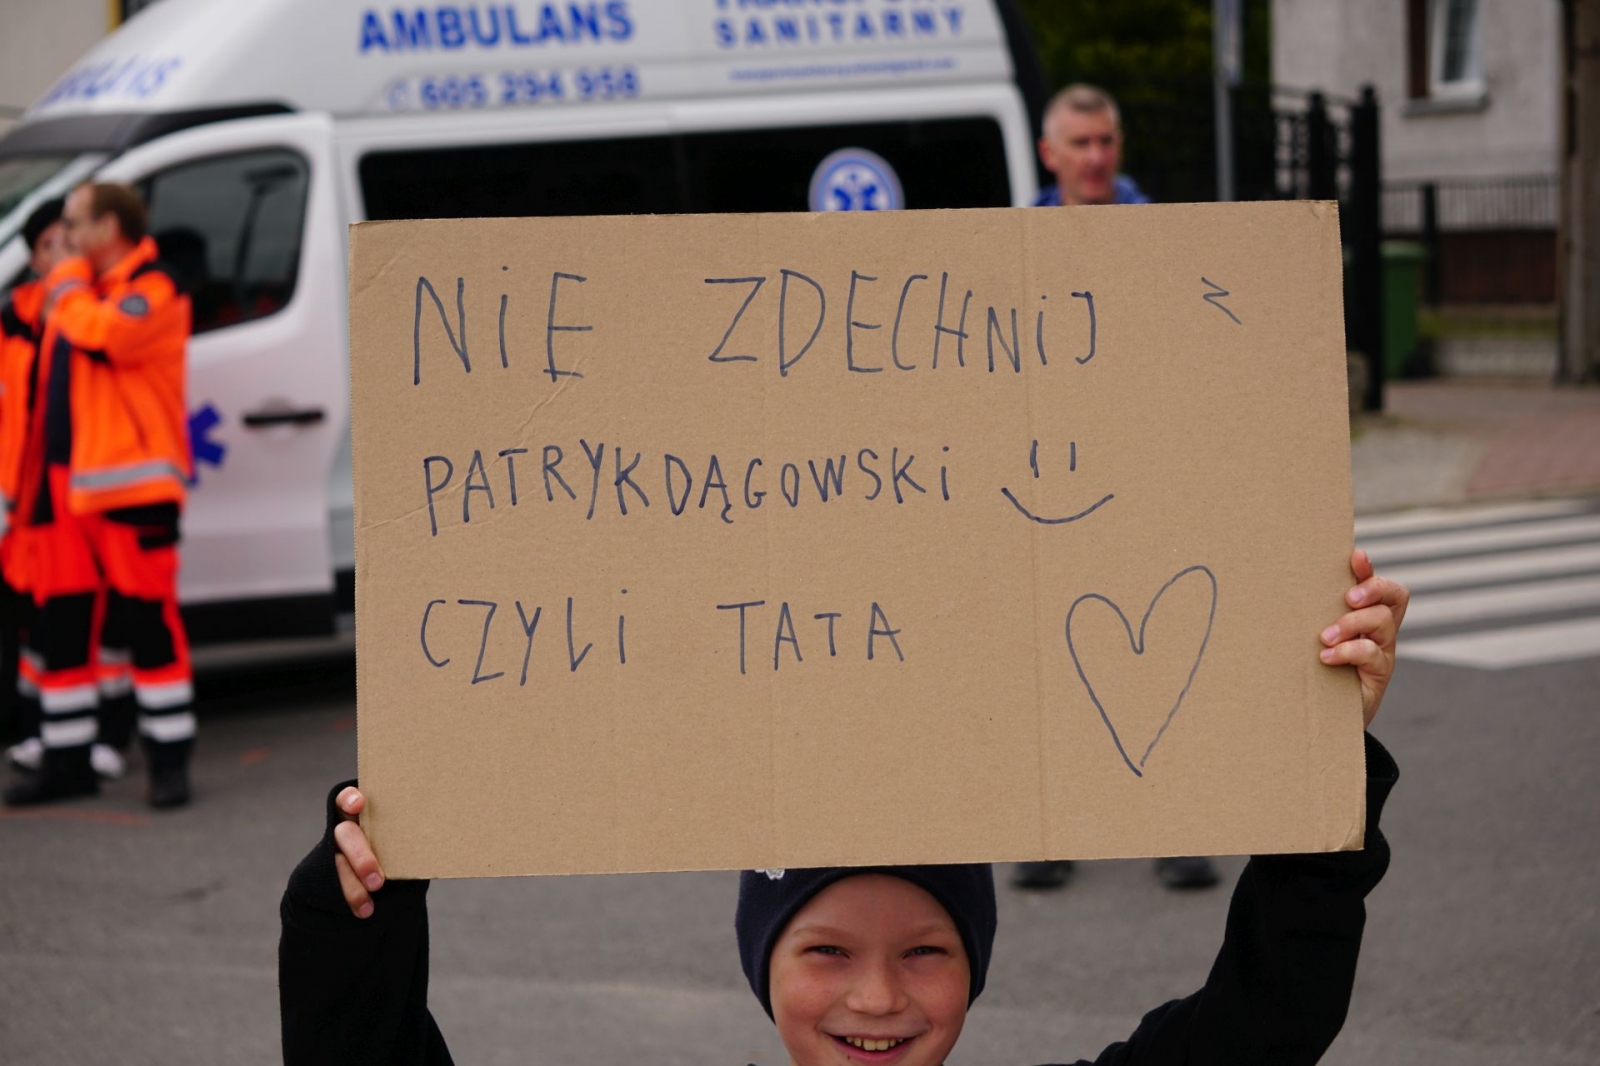 AMBULANS
SANITARNY
605 294 958
NIE ZDECHNIJ
PATRYK DĄGOWSKI
CZYLI TATA